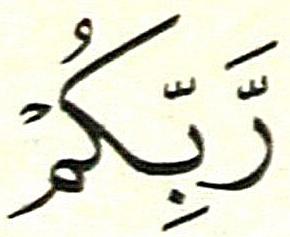 رَّبِّكُمْ